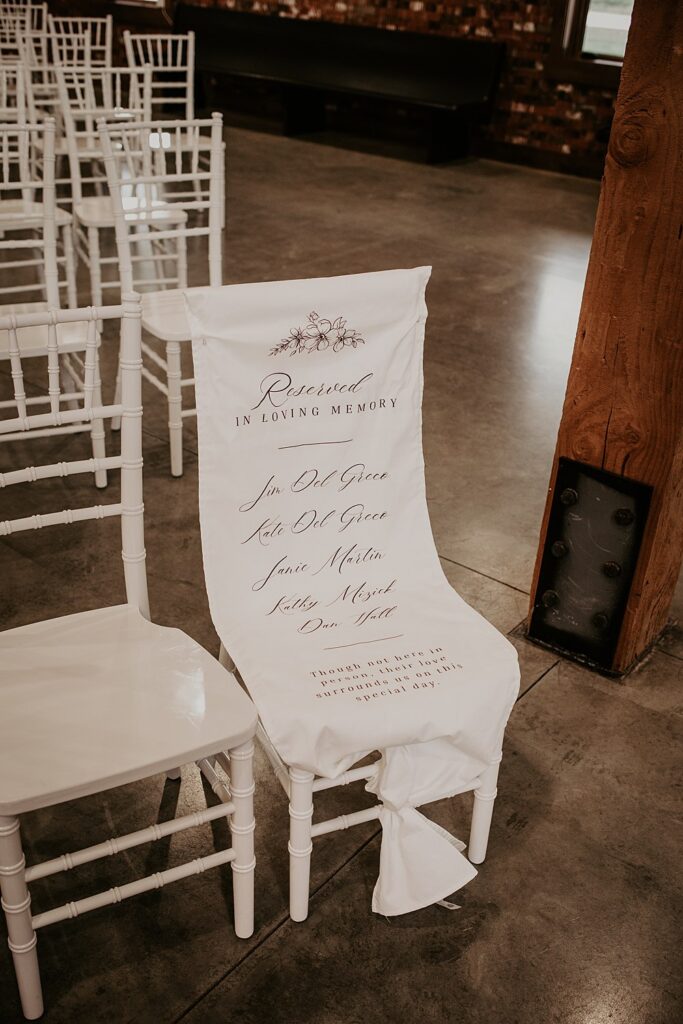 Reserved
IN LOVING MEMORY
Jim Del Greco
Kate Del Greco
Janie Martin
Kathy Mizick
Dan Hall
Though not here in
person, their love
surrounds us on this
special day.